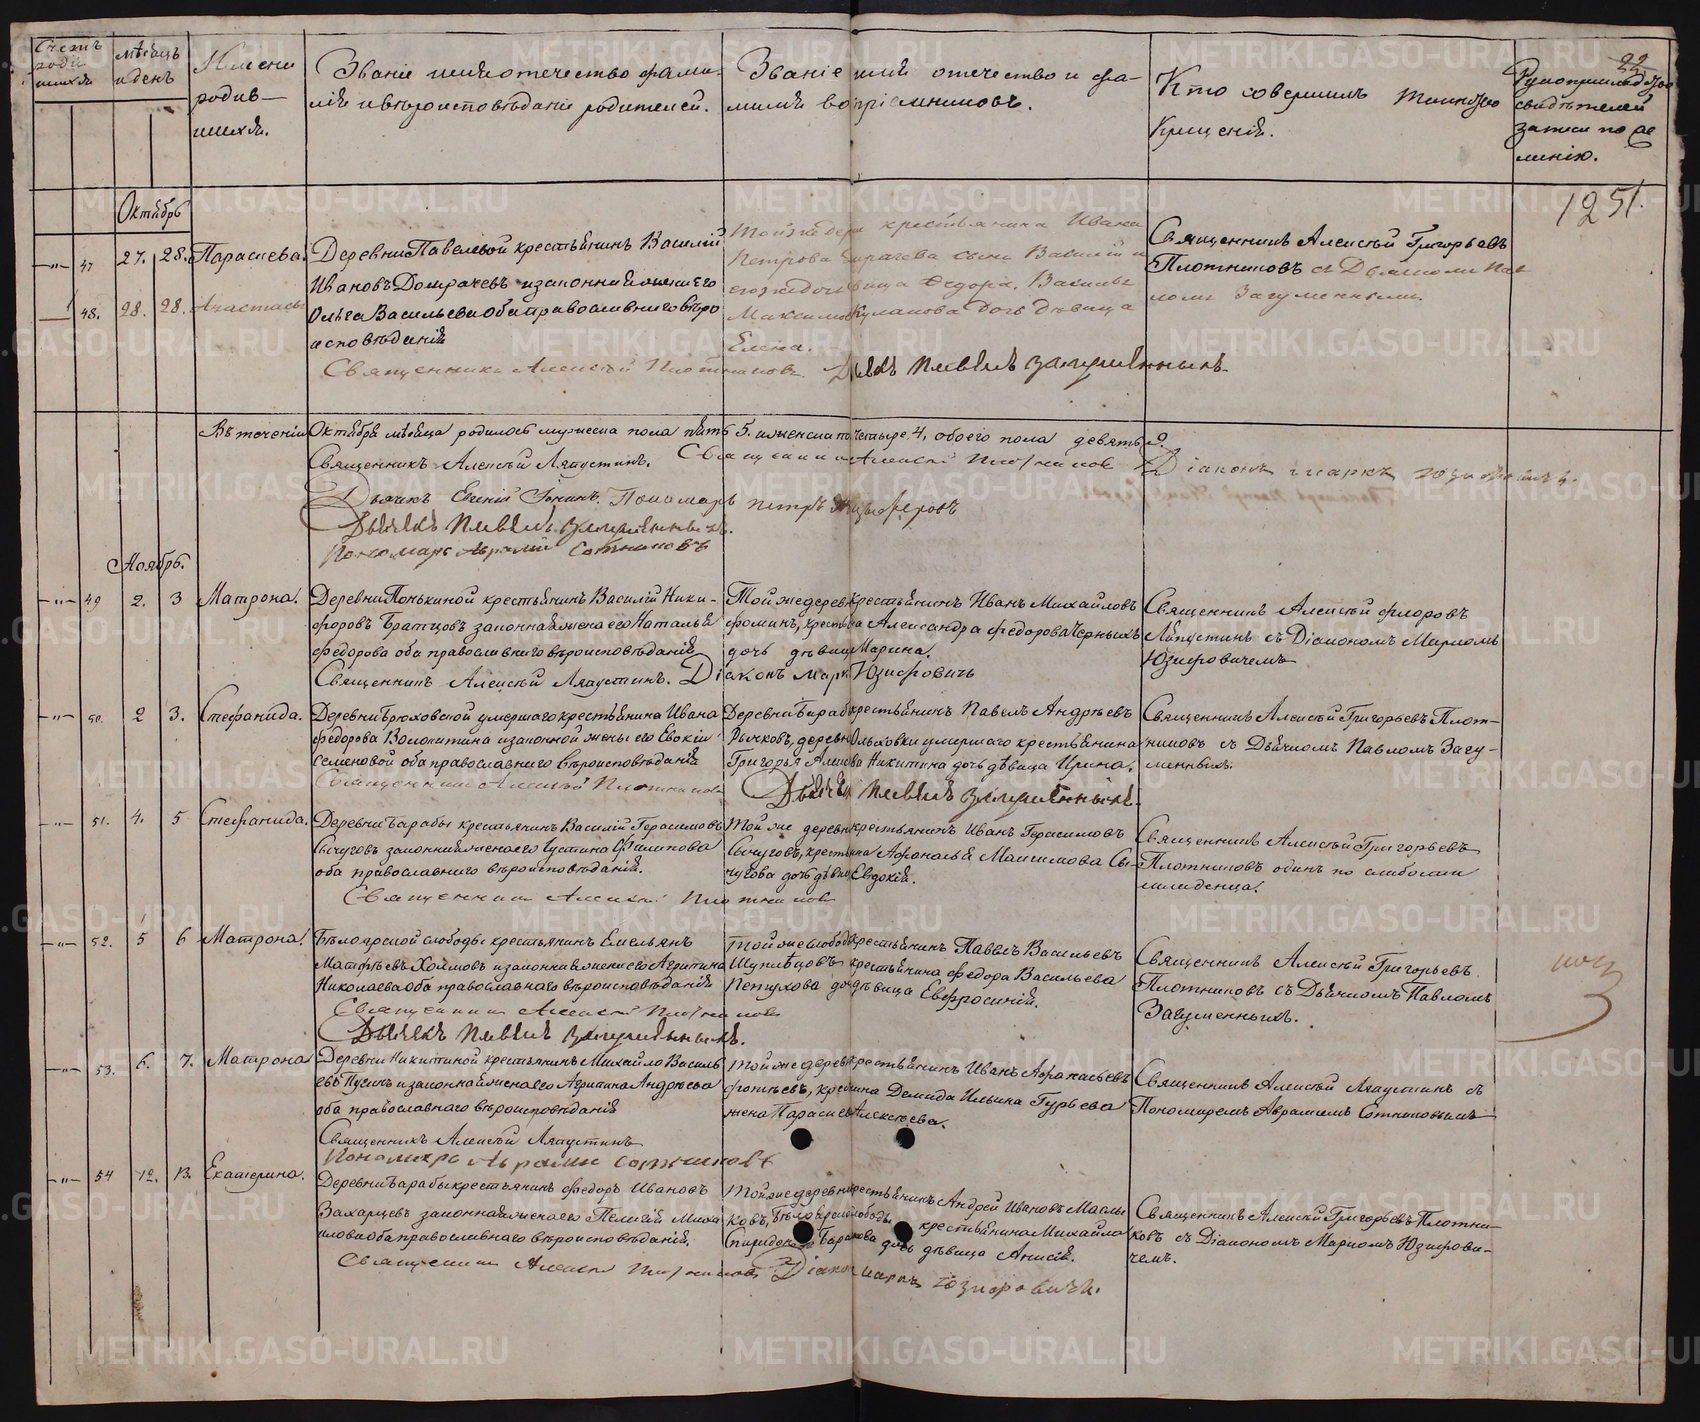 Счетъ родившихся
мѣсяцъ и день
Имена родив-
шихся.
Званіе имя отечество фами-
лія и вѣроисповѣданіе родителей.
Званіе имя отечество и фа-
милія воспріемниковъ.
Кто совершилъ таинство
Крещенія.
Рукоприкладство
свидѣтелей
записи по же
ланію.
22
1251.
Октябрь
47 27. 28. Параскева.
Деревни Павловой крестьянинъ Василій
Ивановъ Домрачевъ и законная жена его
Ольга Васильева оба православнаго вѣро
исповѣданія
48. 28. 28. Анастасія
Той же деревни крестьянина Ивана
Петрова сынъ Василій и
дѣвица Ѳедора. Василья
Максимова Кулакова дочь дѣвица
Елена.
Священникъ Алексѣй Григорьевъ
Плотниковъ съ Дьячкомъ Пав
ломъ Загуменнымъ.
Священникъ Алексѣй Плотниковъ Дьячекъ Павелъ Загуменныхъ
Въ теченіи Октября мѣсяца родилось мужеска пола пять 5. и женска четыре 4, обоего пола девять 9.
Священникъ Алексѣй Ляпустинъ. Священникъ Алексѣй Плотниковъ Діаконъ Маркъ Юзифовичъ.
Дьячекъ Евгеній Іонинъ. Пономарь Петръ
Дьячекъ Павелъ Загуменныхъ.
Пономарь Аврамій Сотниковъ
Ноябрь.
49 2. 3 Матрона.
Деревни Понькиной крестьянинъ Василій Ники-
форовъ Братцовъ законная жена его Наталья
Федорова оба православнаго вѣроисповѣданія
Священникъ Алексѣй Ляпустинъ. Діаконъ Маркъ Юзифовичъ
Той же деревни крестьянинъ Иванъ Михайловъ
Фоминъ, крестьянина Александра Федорова Черныхъ
дочь дѣвица Марина.
Священникъ Алексѣй Флоровъ
Ляпустинъ съ Діакономъ Маркомъ
Юзифовичемъ
50. 2 3. Стефанида.
Деревни Брюховской умершаго крестьянина Ивана
Федорова Волокитина и законной жены его Евдокіи
Семеновой оба православнаго вѣроисповѣданія
Священникъ Алексѣй Плотниковъ
Деревни Барабы крестьянинъ Павелъ Андреевъ
Рычковъ, деревни Ольховки умершаго крестьянина
Григорья Никитина дочь дѣвица Ирина.
Дьячекъ Павелъ Загуменныхъ.
Священникъ Алексѣй Григорьевъ Плот-
никовъ съ Дьячкомъ Павломъ Загу-
менныхъ.
51. 4. 5 Стефанида.
Деревни Барабы крестьянинъ Василій Герасимовъ
Сычуговъ законная жена его Іустина Филипова
оба православнаго вѣроисповѣданія.
Священникъ Алексѣй Плотниковъ
Той же деревни крестьянинъ Иванъ Герасимовъ
Сычуговъ, крестьянина Афонасья Максимова Сы-
чугова дочь дѣвица Евдокія.
Священникъ Алексѣй Григорьевъ
Плотниковъ одинъ по слабости
младенца.
52. 5 6 Матрона.
Бѣлоярской слободы крестьянинъ Емельянъ
Матфѣевъ Холмовъ и законная жена его Агрипина
Николаева оба православнаго вѣроисповѣданія
Священникъ Алексѣй Плотниковъ
Дьячекъ Павелъ Загуменныхъ.
Той же слободы крестьянинъ Павелъ Васильевъ
Шуплѣцовъ крестьянина Федора Васильева
Пепухова дочь дѣвица Евфросинія.
Священникъ Алексѣй Григорьевъ
Плотниковъ съ Дьячкомъ Павломъ
Загуменныхъ.
53. 6. 7. Матрона
Деревни Никитиной крестьянинъ Михайло Василь
евъ Пусинъ и законная жена его Агрипина Андреева
оба православнаго вѣроисповѣданія
Священникъ Алексѣй Ляпустинъ
Пономарь Аврамій Сотниковъ
Той же деревни крестьянинъ Иванъ Афанасьевъ
Фотѣевъ, крестьянина Демида Ильина Гурьева
жена Параскева Алексѣева.
Священникъ Алексѣй Ляпустинъ съ
Пономаремъ Аврамомъ Сотниковымъ
54 12. 13. Екатерина.
Деревни Барабы крестьянинъ Федоръ Ивановъ
Захарцевъ законная жена его Пелагія Миха
илова оба православнаго вѣроисповѣданія.
Священникъ Алексѣй Плотниковъ Діаконъ Маркъ Юзифовичъ.
Той же деревни крестьянинъ Андрей Ивановъ
Бѣлоярской слободы крестьянина Михайла
Спиридонова дочь дѣвица Анисія.
Священникъ Алексѣй Григорьевъ Плотни-
ковъ съ Діакономъ Маркомъ Юзифови-
чемъ.
METRIKI.GASO-URAL.RU